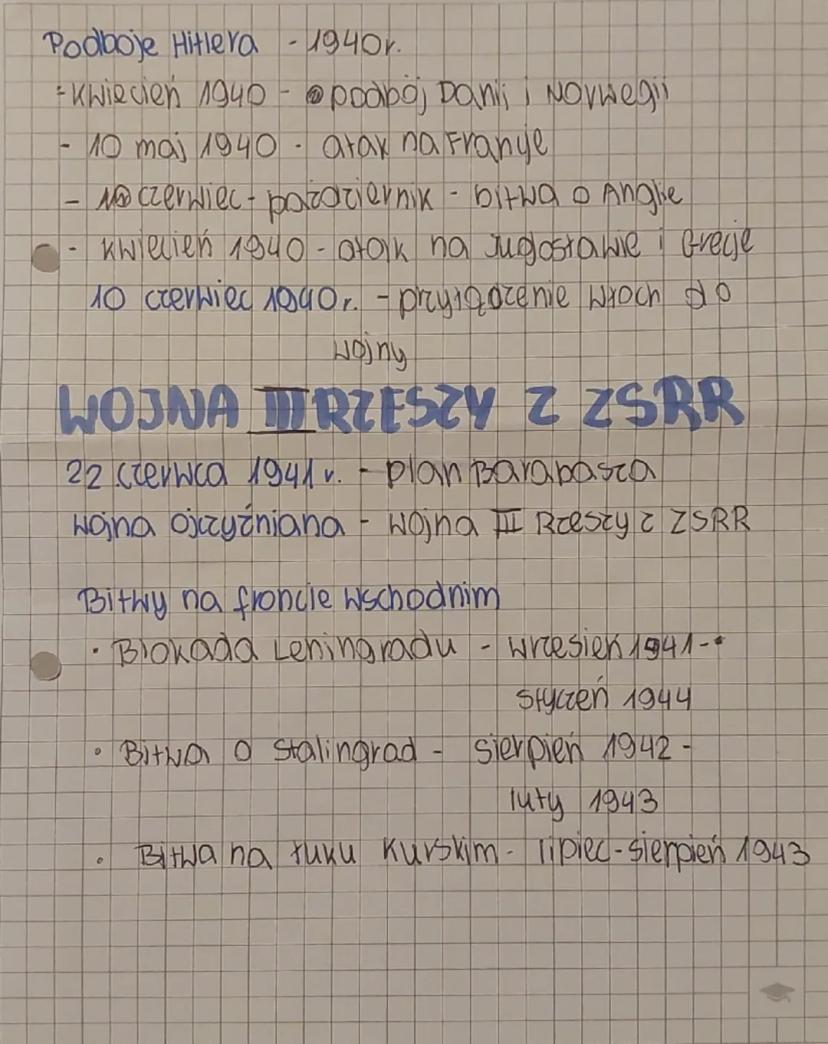 Podboje Hitlera - 1940r.
- kwiecień 1940 - podbój Danii i Norwegii
- 10 maj 1940 - atak na Franje
- czerwiec - październik - bitwa o Anglie
- kwiecień 1940 - atak na Jugosławie i Grecje
10 czerwiec 1940r. - przyłączenie Włoch do
wojny
WOJNA III RZESZY Z ZSRR
22 czerwca 1941r. - plan Barabasza
wojna ojczyźniana - wojna III Rzeszy z ZSRR
Bitwy na froncie wschodnim
• Blokada Leningradu - wrzesień 1941 -
styczeń 1944
• Bitwa o Stalingrad - sierpień 1942 -
luty 1943
• Bitwa na łuku Kurskim - lipiec-sierpień 1943